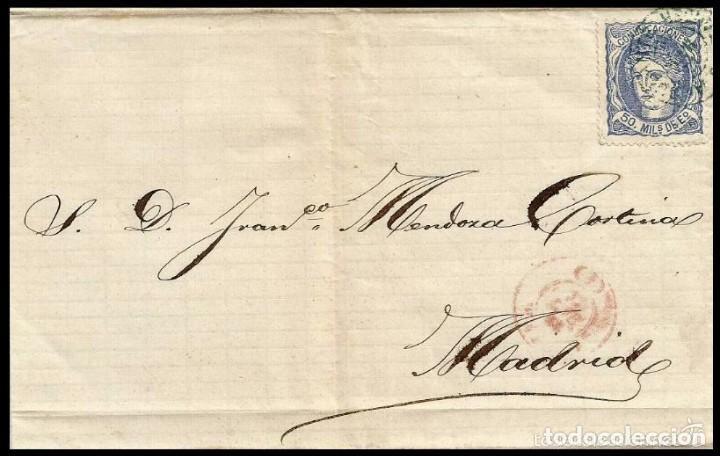 COMUNICACIONES
50. MILS DE EO
S. D. Franco. Mendoza Cortina
Madrid
todocoleccion